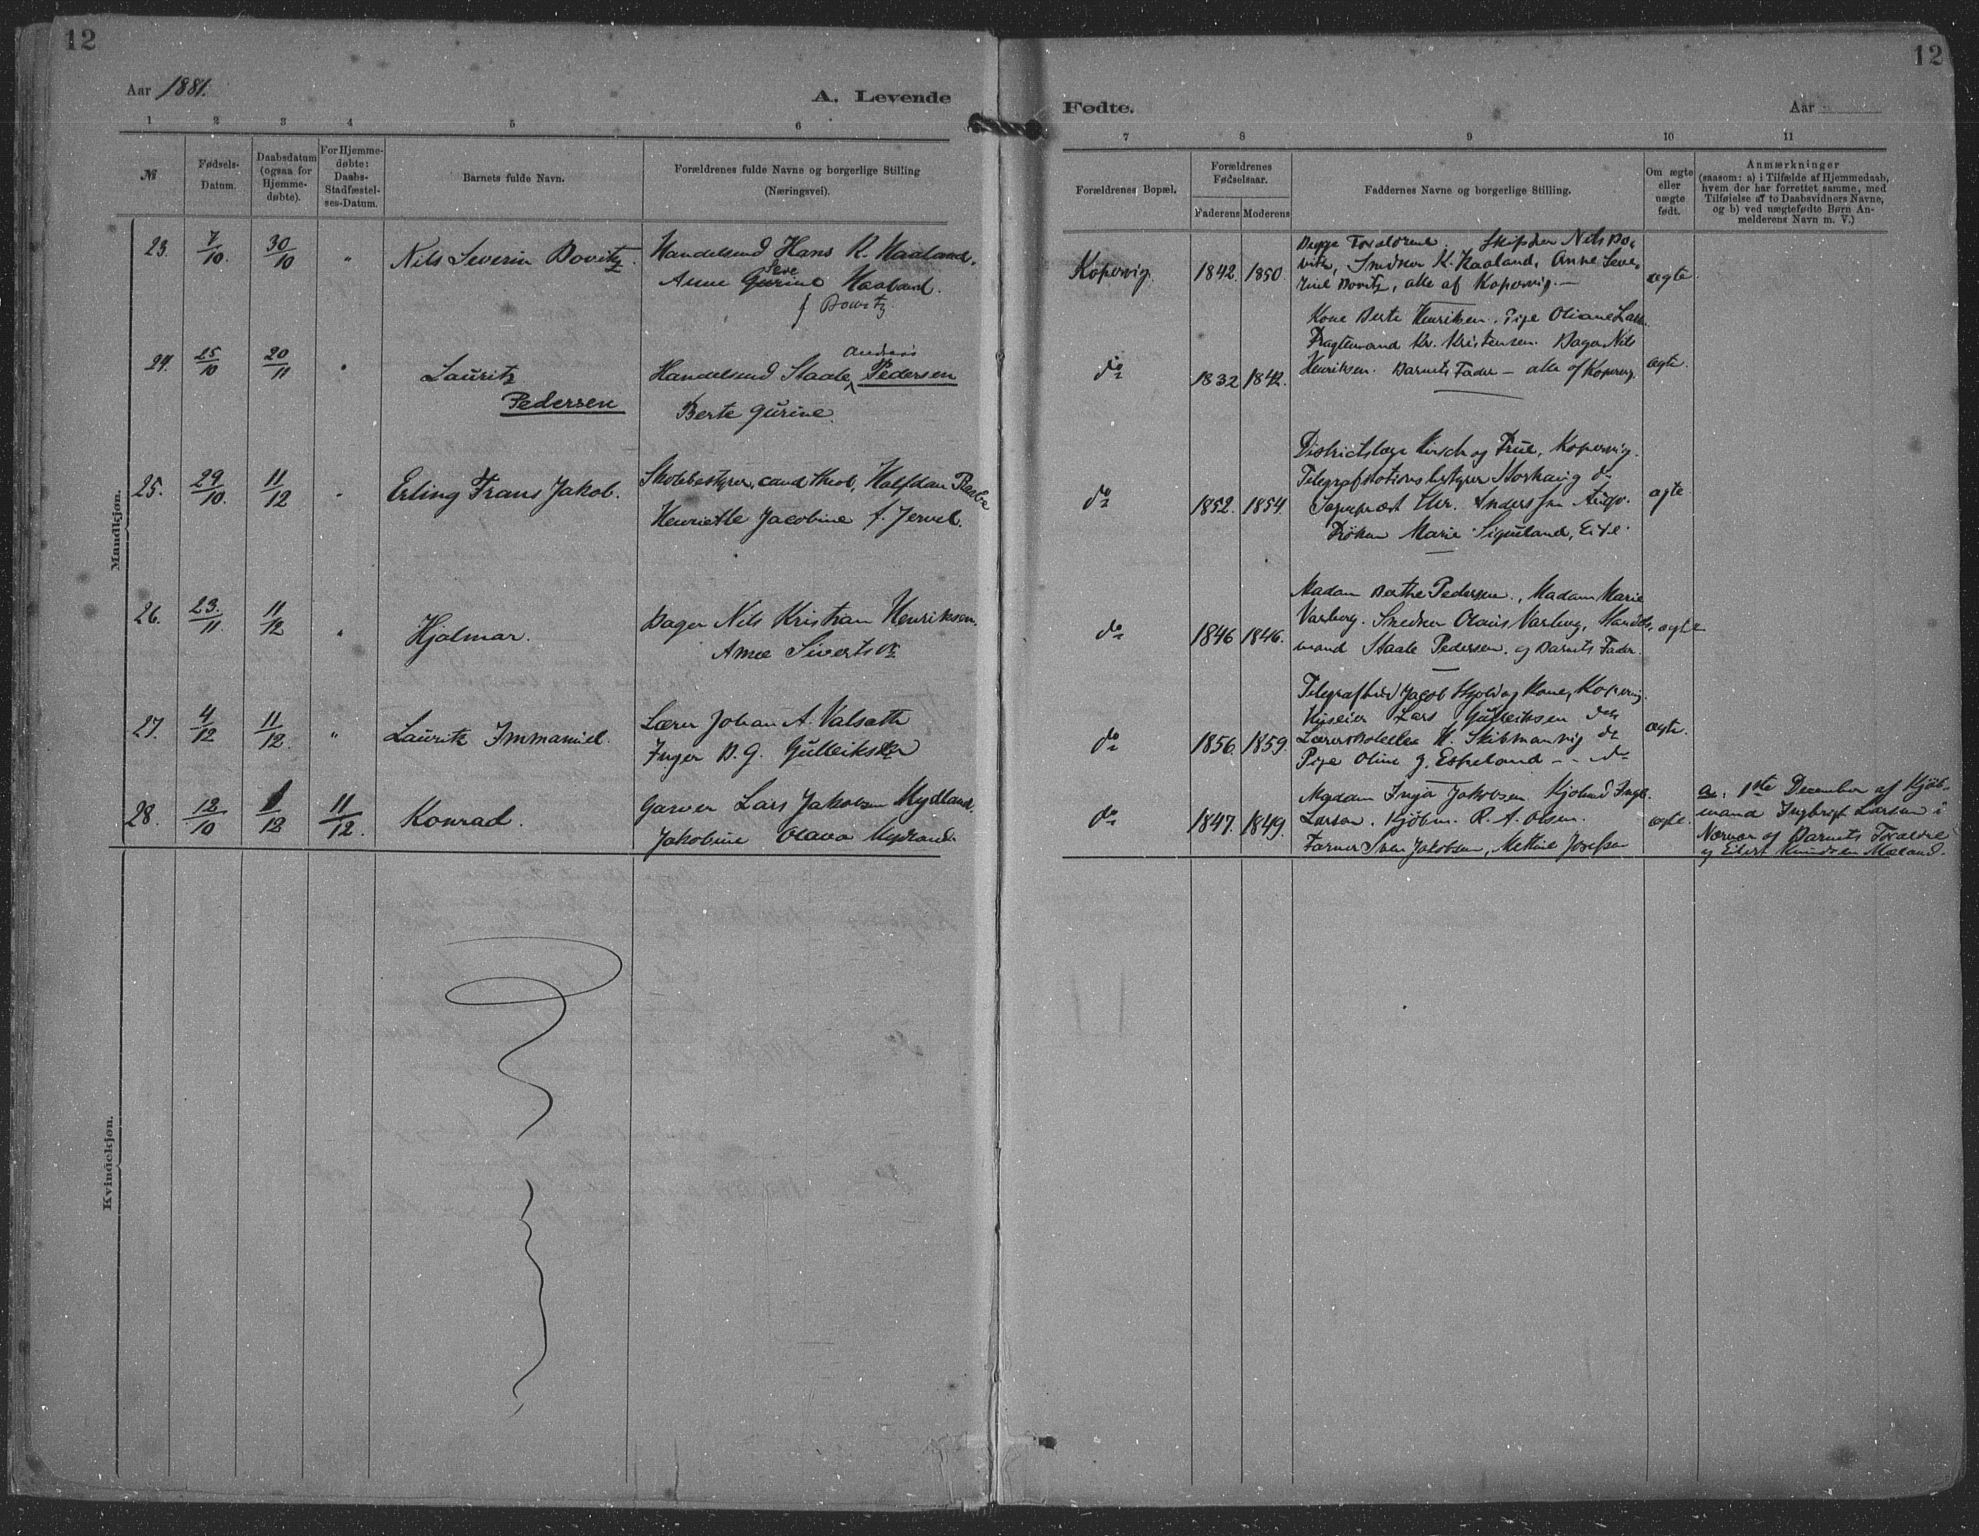 12
12
Aar 1881.
A. Levende
Fødte.
Aar
1 2 3 4 5 6
7 8 9 10 11
№
Fødsels-
Datum.
Daabsdatum
(ogsaa for
Hjemme-
døbte).
For Hjemme-
døbte:
Daabs-
Stadfæstel-
ses-Datum.
Barnets fulde Navn.
Forældrenes fulde Navne og borgerlige Stilling
(Næringsvei).
Forældrenes Bopæl.
Forældrenes
Fødselsaar.
Faderens Moderens
Faddernes Navne og borgerlige Stilling.
Om ægte
eller
uægte
født.
Anmærkninger
(saasom: a) i Tilfælde af Hjemmedaab,
hvem der har forrettet samme, med
Tilføielse af to Daabsvidners Navne,
og b) ved uægtefødte Børn An-
melderens Navn m. V.)
Mandkjøn.
23. 7/10 30/10 " Nils Severin Dovitz
Handelsmd Hans R. Haaland.
Anne Haaland.
f Dovitz
Kopervig. 1842. 1850
Begge Forældrene. Nils Do-
vitz, K. Haaland, Anne Seve-
rine Dovitz, alle af Kopervig. —
ægte
24. 25/10 20/11 " Lauritz
Pedersen
Handelsmd Staale Andreas Pedersen
Berte Gurine
do 1832 1842.
Kone Berte Henriksen. Pige Oliane
Fragtemand Kr. Kristensen. Bager Nils
Henriksen. Barnets Fader — alle af Kopervig.
ægte.
25. 29/10 11/12 " Erling Frans Jakob.
Skolebestyrer, cand theol, Halfdan
Henriette Jacobine f. Jervel.
do 1852. 1854.
Districtslæge Kirsch og Frue, Kopervig.
Telegrafstationsbestyrer do
Sogneprest Chr. Andersen
Frøken Marie Sigveland, Eide.
ægte
26. 23/11 11/12 " Hjalmar.
Bager Nils Kristian Henriksen.
Anne Sivertsdr
do 1846 1846.
Madam Berthe Pedersen, Madam Marie
Varberg. Snedker Olaus Varberg, Handels-
mand Staale Pedersen og Barnets Fader.
ægte
27. 4/12 11/12 " Lauritz Immanuel.
Lærer Johan A. Valsath
Inger B. G. Gulleiksdr
do 1856 1859.
Jacob og Kone, Kopervig
Huseier Lars Gulleiksen
H. Skibmannvig do
Pige Oline G. Espeland - - do
ægte.
28. 12/10 1/12 11/12. Konrad.
Garver Lars Jakobsen Mydland
Jakobine Olava Mydland
do 1847. 1849.
Madam Inger Jakobsen Kjøbmd
Larsen. Kjøbm. R. A. Olsen.
Farver Sven Jakobsen, Mettine Josefsen
ægte.
a: 1ste December af Kjøb-
mand Ingbrigt Larsen i
Nærvær af Barnets Forældre
og Eilert Knudsen Mæland.
Kvindekjøn.